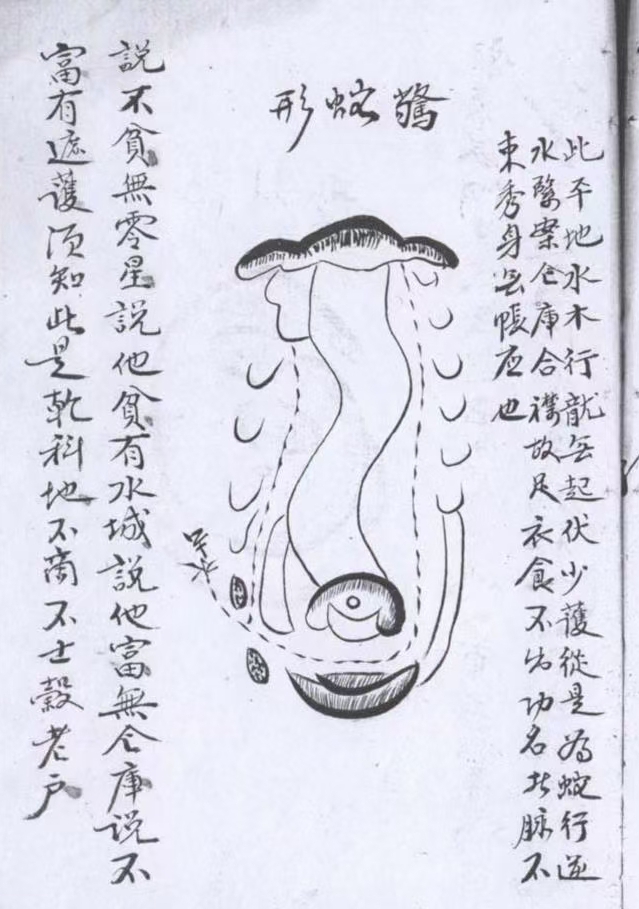 此平地水木行龍無起伏少護從是為蛇行逆
水繄案仓庫合襟故足衣食不出功名於脉不
束秀身無帳应也
驚蛇形
說不貧無零星說他貧有水城說他富無仓庫說不
富有遮護須知此是乾科地不商不士穀老户